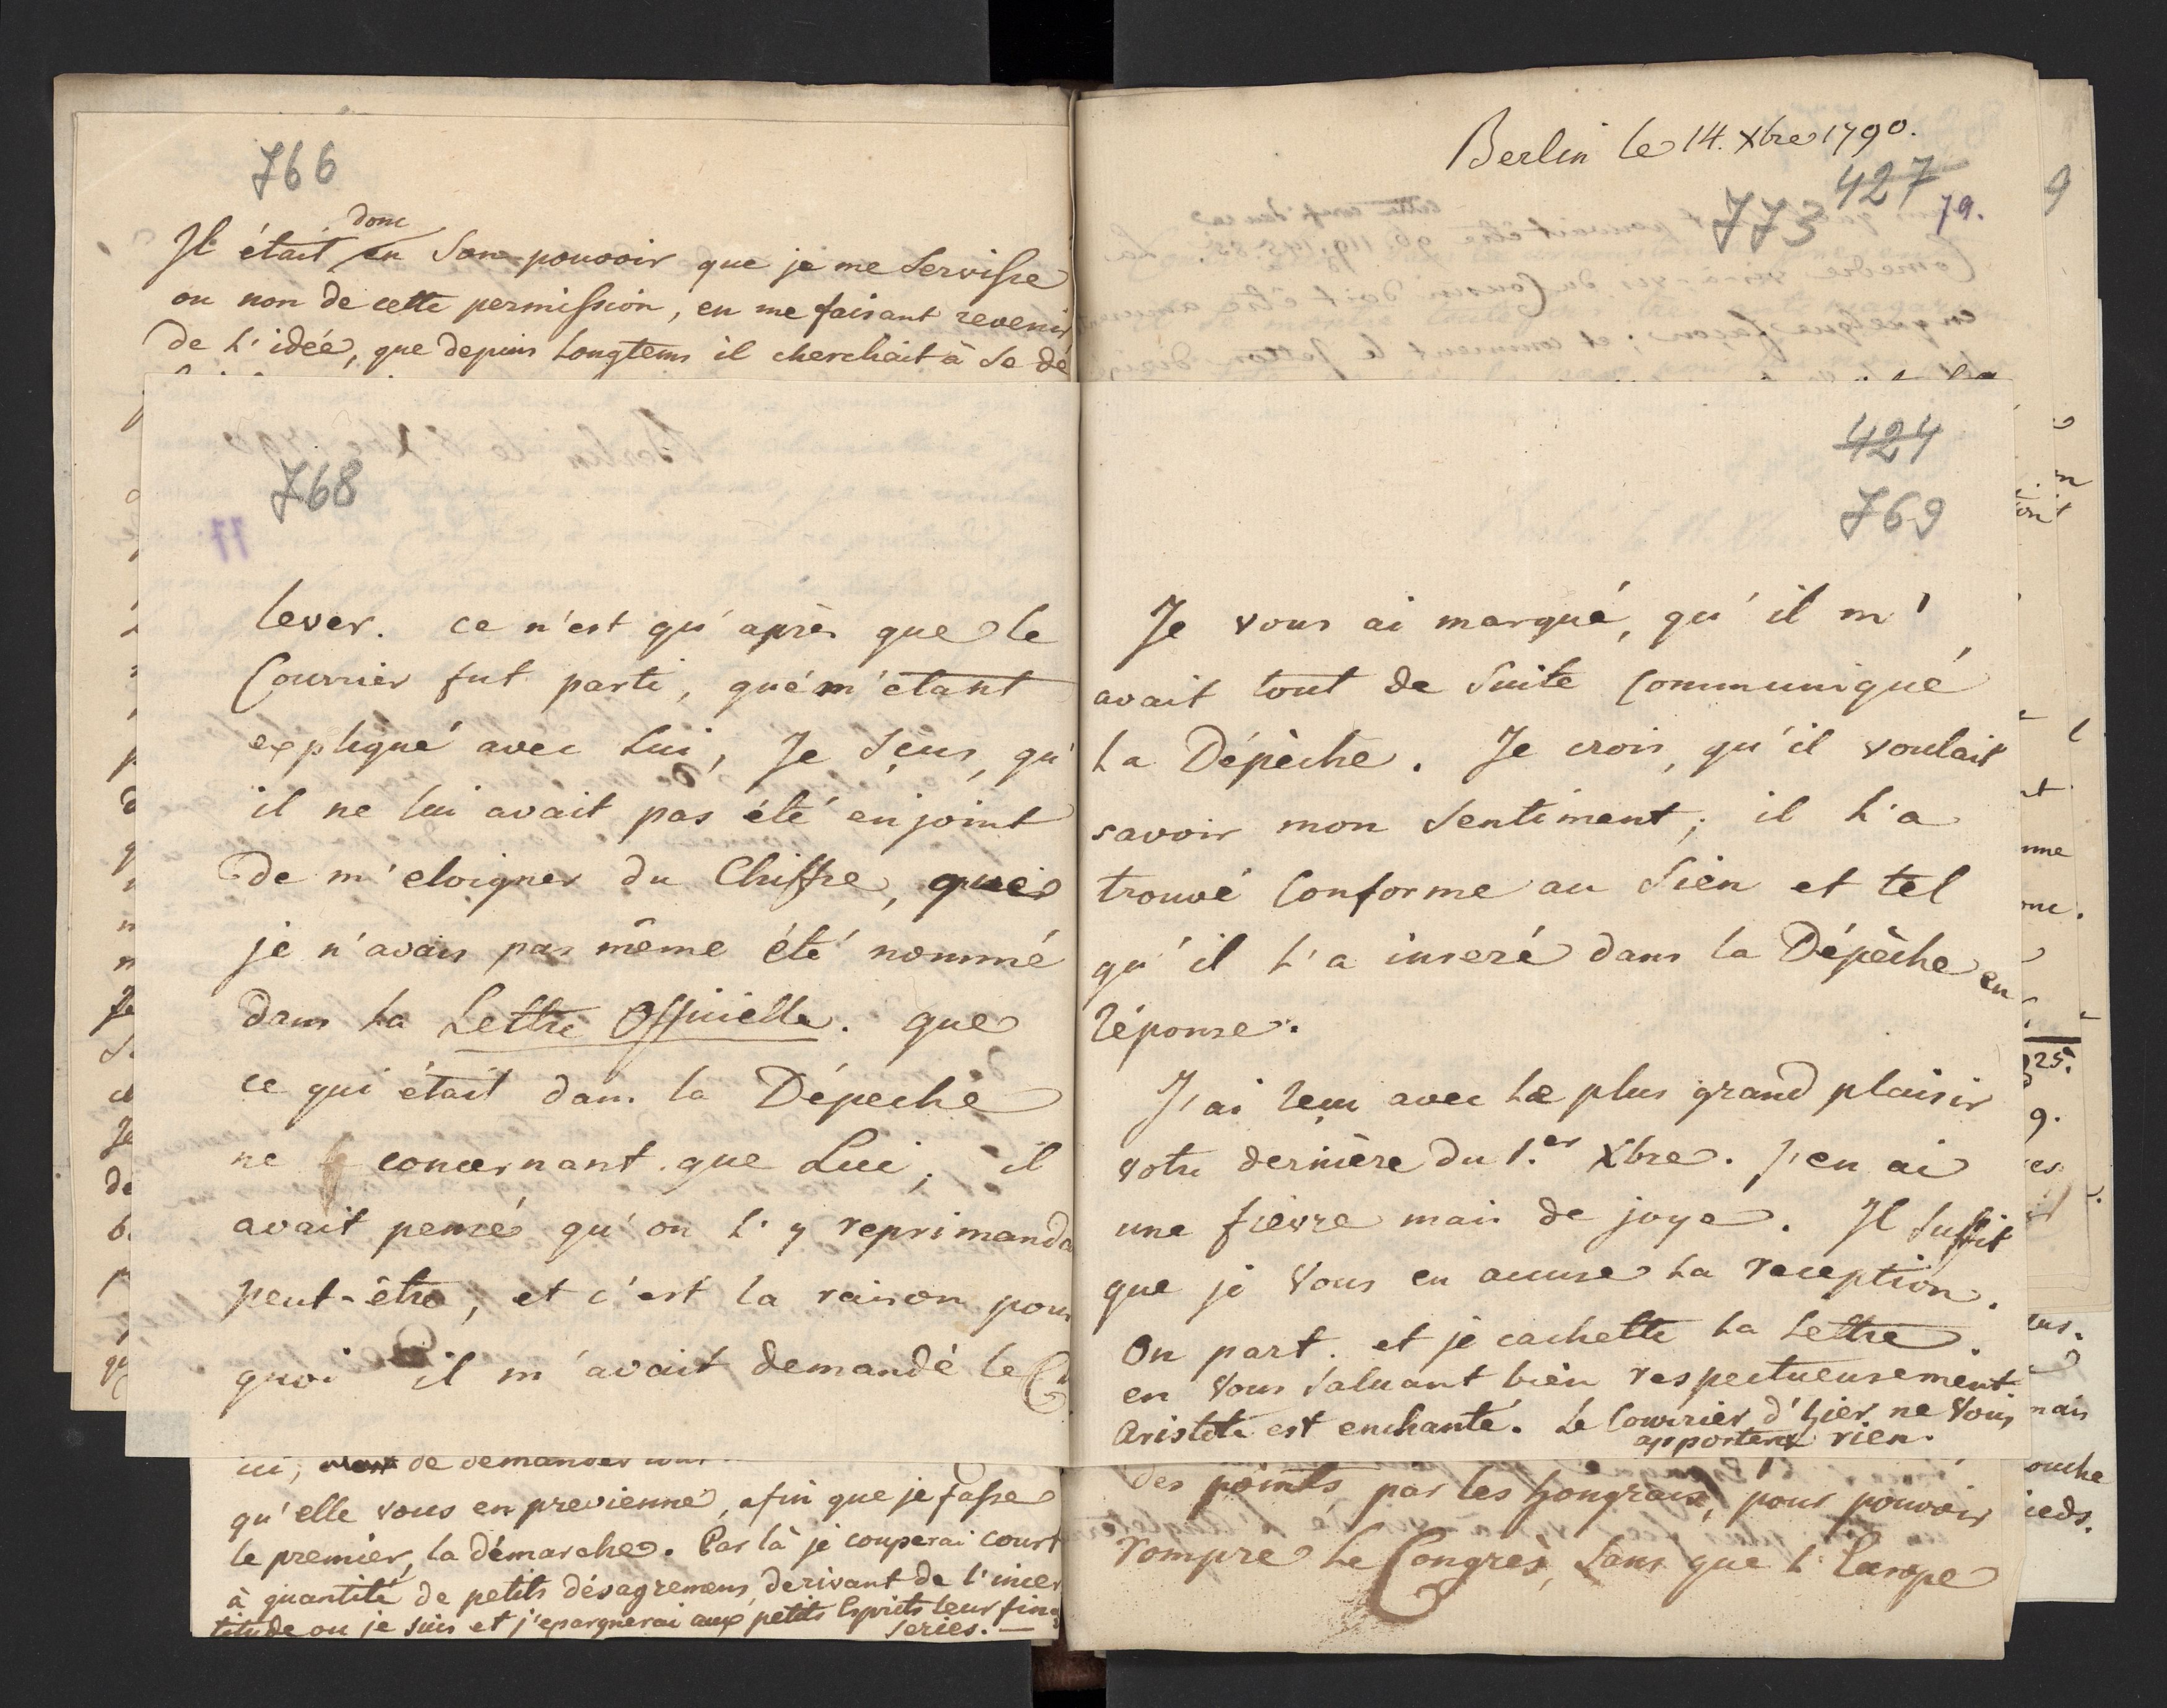 766
donc
Il était en son pouvoir que je me servisse
ou non de cette permission, en me faisant revenir
de l'idée, que depuis longtems il cherchait à se dé
768
11
lever. ce n'est qu'après que le
Courrier fut parti, que m'étant
expliqué avec lui, Je sçus, qu'
il ne lui avait pas été enjoint
de m'eloigner du Chiffre, que
je n'avais pas même été nommé
dans la Lettre Officielle. que
ce qui était dans la Dépeche
ne concernant que Lui, il
avait pensé qu'on l'y reprimanda
peut-être, et c'est la raison pour
quoi il m'avait demandé le
de demander
qu'elle vous en previenne, afin que je fasse
le premier, la démarche. Par là je couperai court
à quantité de petits désagremens, derivant de l'incer
titude ou je suis et j'epargnerai aux petits Esprits leur fines
series. —
Berlin le 14. Xbre 1790.
427
773
79.
424
769
Je vous ai marqué, qu'il m'
avait tout de suite communiqué
la Dépèche. Je crois, qu'il voulait
savoir mon sentiment; il l'a
trouvé conforme au sien et tel
qu'il l'a inseré dans la Dépèche en
réponse.
J'ai reçu avec le plus grand plaisir
votre dernière du 1.er Xbre. J'en ai
une fièvre mais de joye. Il suffit
que je vous en accuse la reception.
On part. et je cachette la Lettre.
en vous saluant bien respectueusement
Aristote est enchanté. Le Courrier d'hier ne vous
apportera rien.
des points par les hongrais, pour pouvoir
rompre le Congrès, sans que l'Europe
9
25.
9.
mais
ouche
ieds.